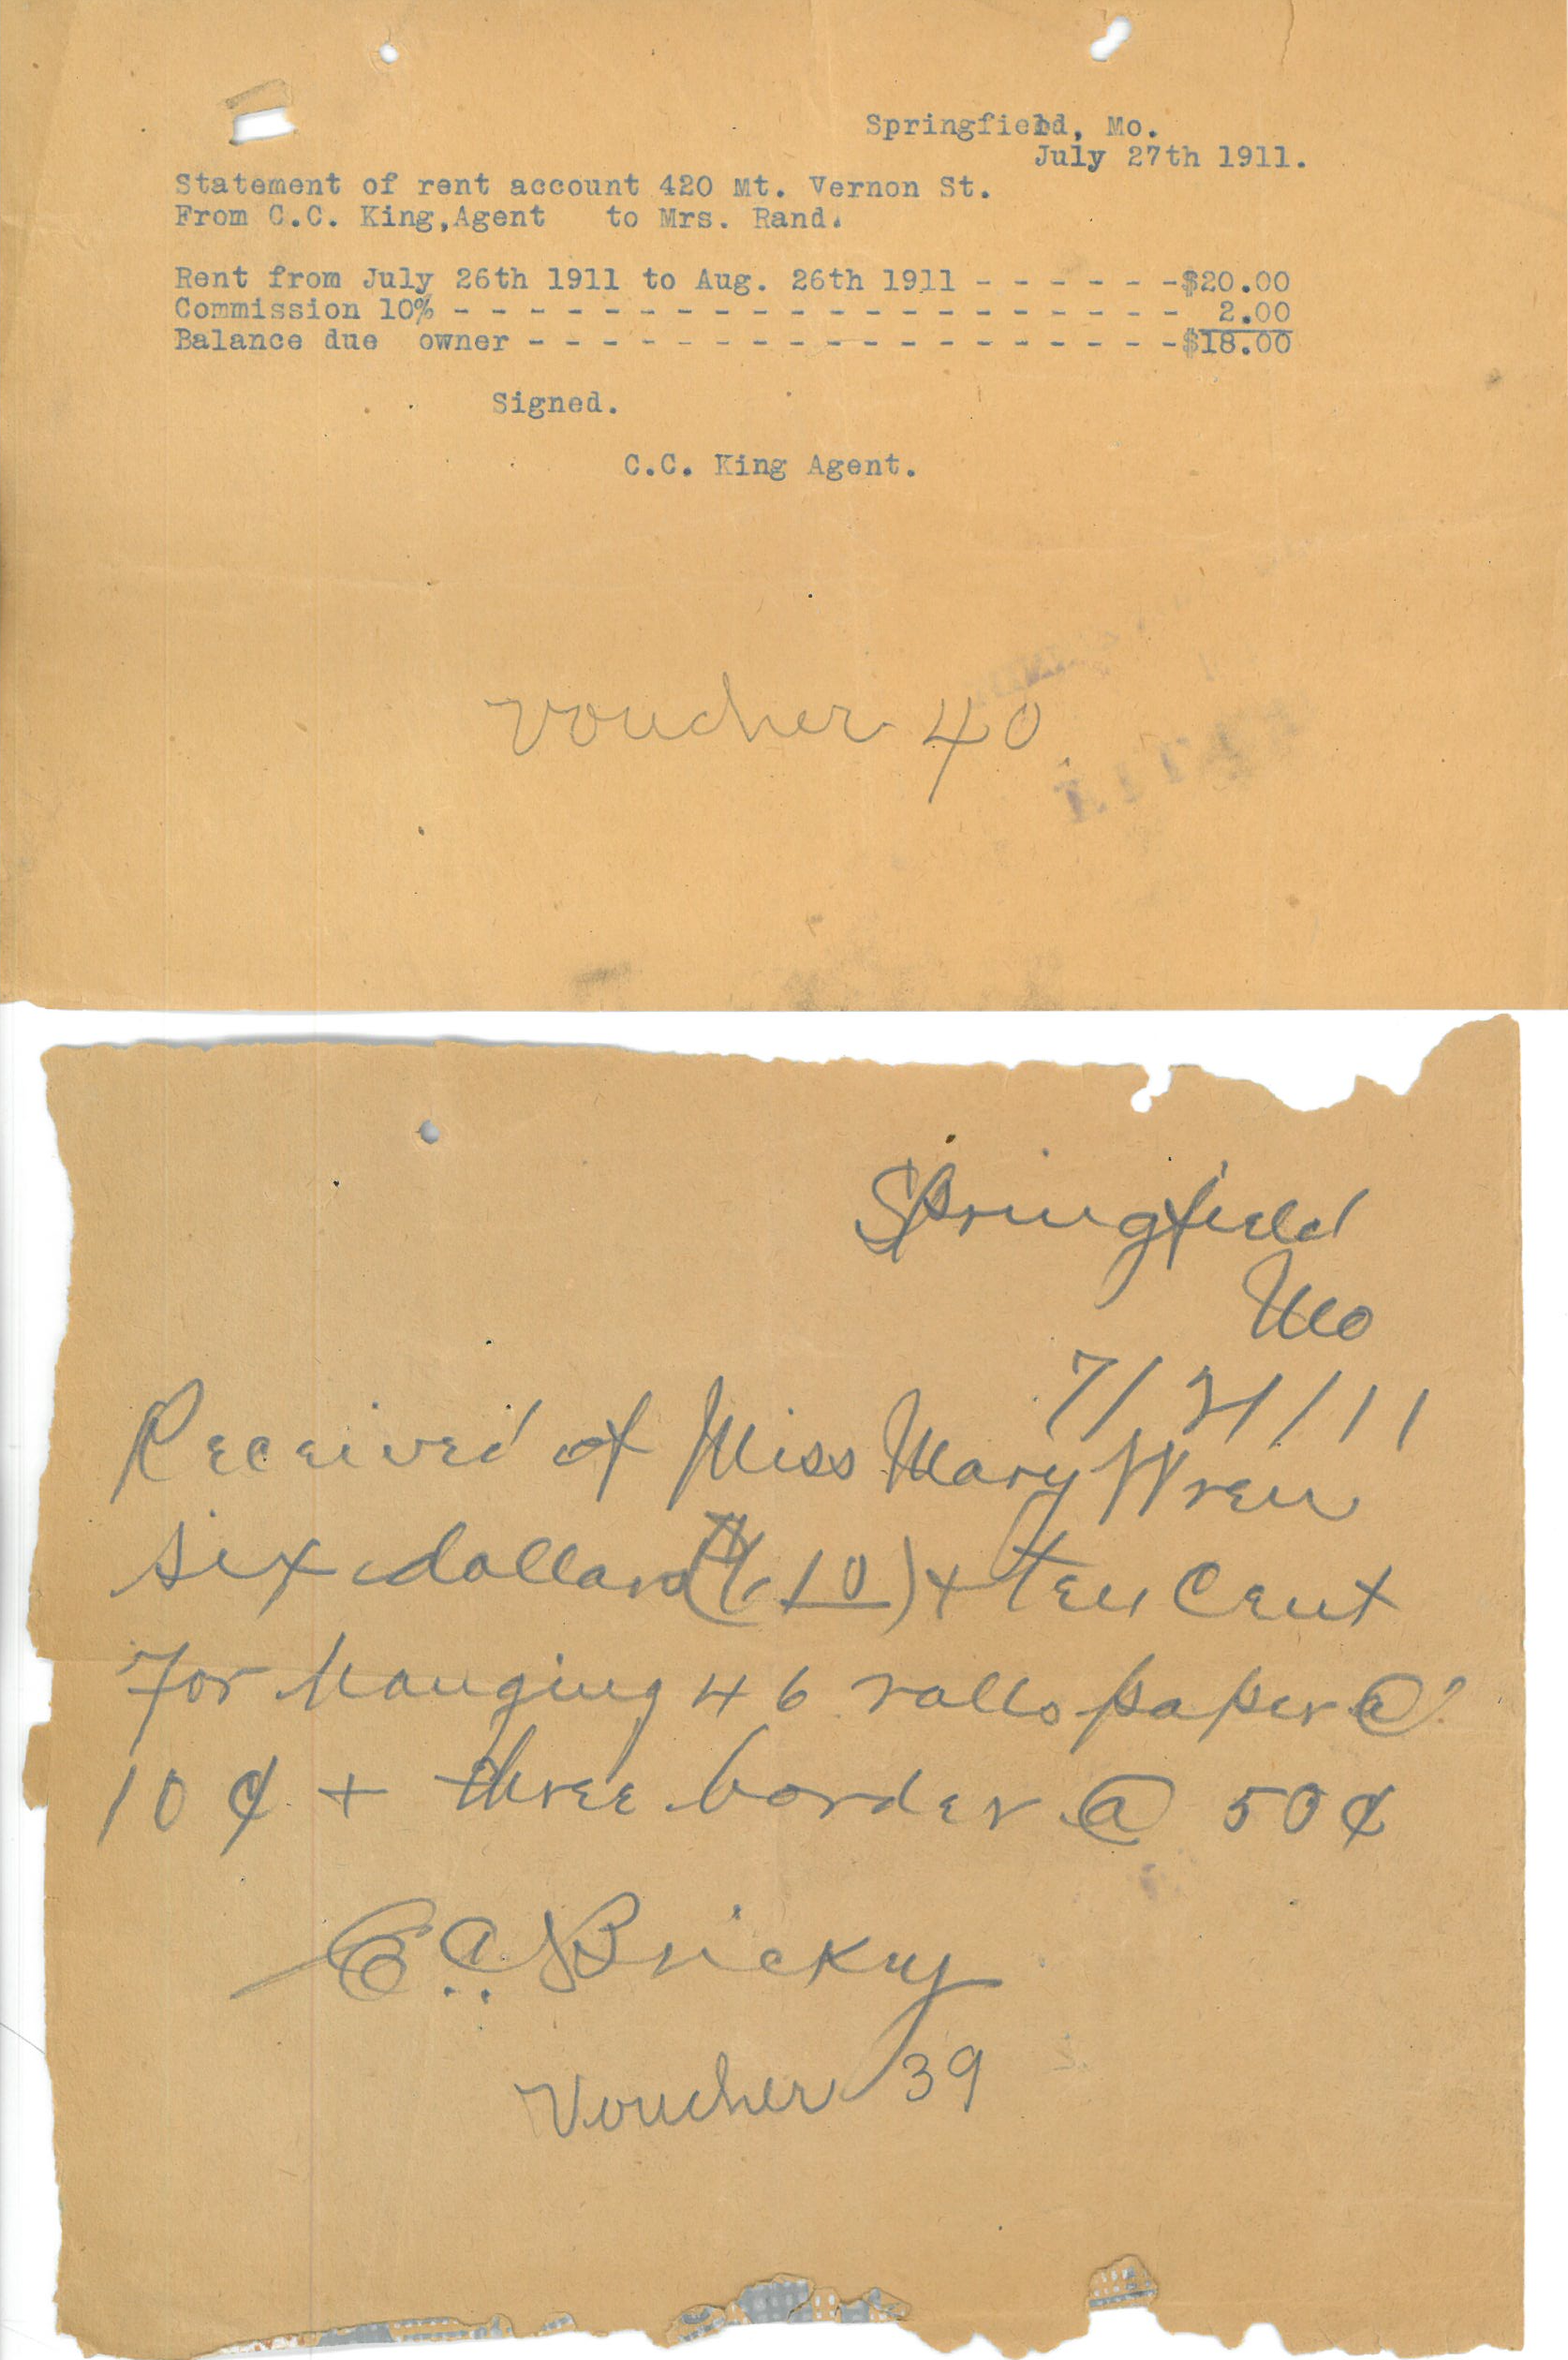 Springfield, Mo.
July 27th 1911.
Statement of rent account 420 Mt. Vernon St.
From C.C. King,Agent to Mrs. Rand.
Rent from July 26th 1911 to Aug. 26th 1911 - - - - - -$20.00
Commission 10% - - - - - - - - - - - - - - - - - - - - 2.00
Balance due owner - - - - - - - - - - - - - - - - - -$18.00
Signed.
C.C. King Agent.
Voucher 40
Springfield
Mo
7/21/11
Received of Miss Mary Wren
six dollars ($6.10) + ten cent
For hanging 46 rolls paper @
10 ¢ + three border @ 50¢
E.A. Bricky
Voucher 39